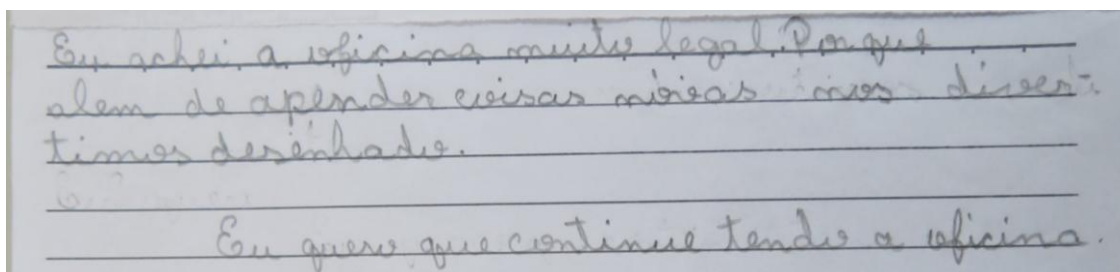 Eu achei a oficina muito legal. Por que
alem de apender coisas nóvas nos diver-
timos desenhado.
Eu quero que continue tendo a oficina.